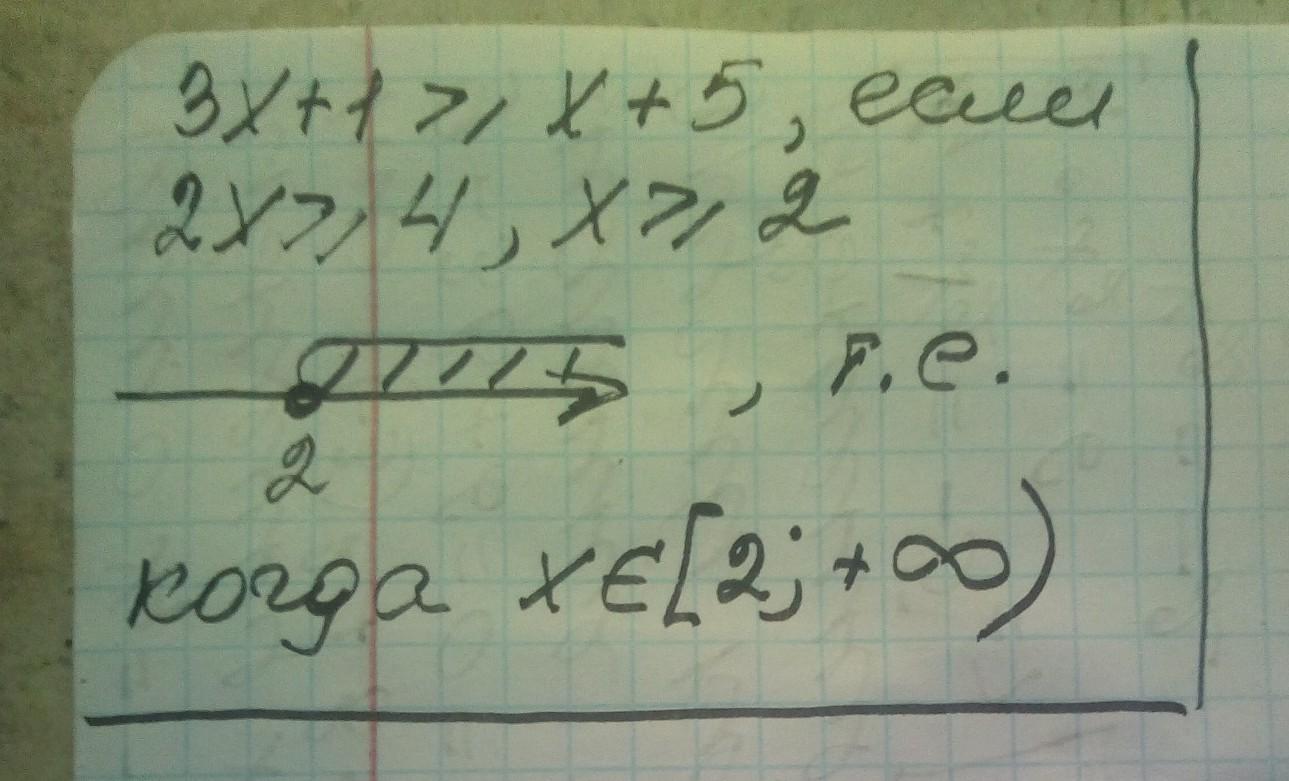 3x+1 ⩾ x+5, если
2x ⩾ 4, x ⩾ 2
, т.е.
2
когда x∈[2; +∞)